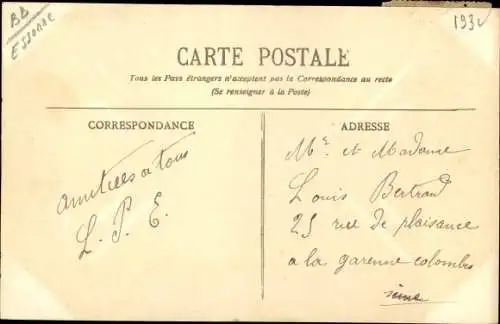 BD
ESSONNE
193
CARTE POSTALE
Tous les Pays étrangers n'acceptent pas la Correspondance au recto
(Se renseigner à la Poste)
CORRESPONDANCE
amitiées a tous
L. P. E.
ADRESSE
Mr et Madame
Louis Bertrand
25 rue de plaisance
a la garenne colombes
seine